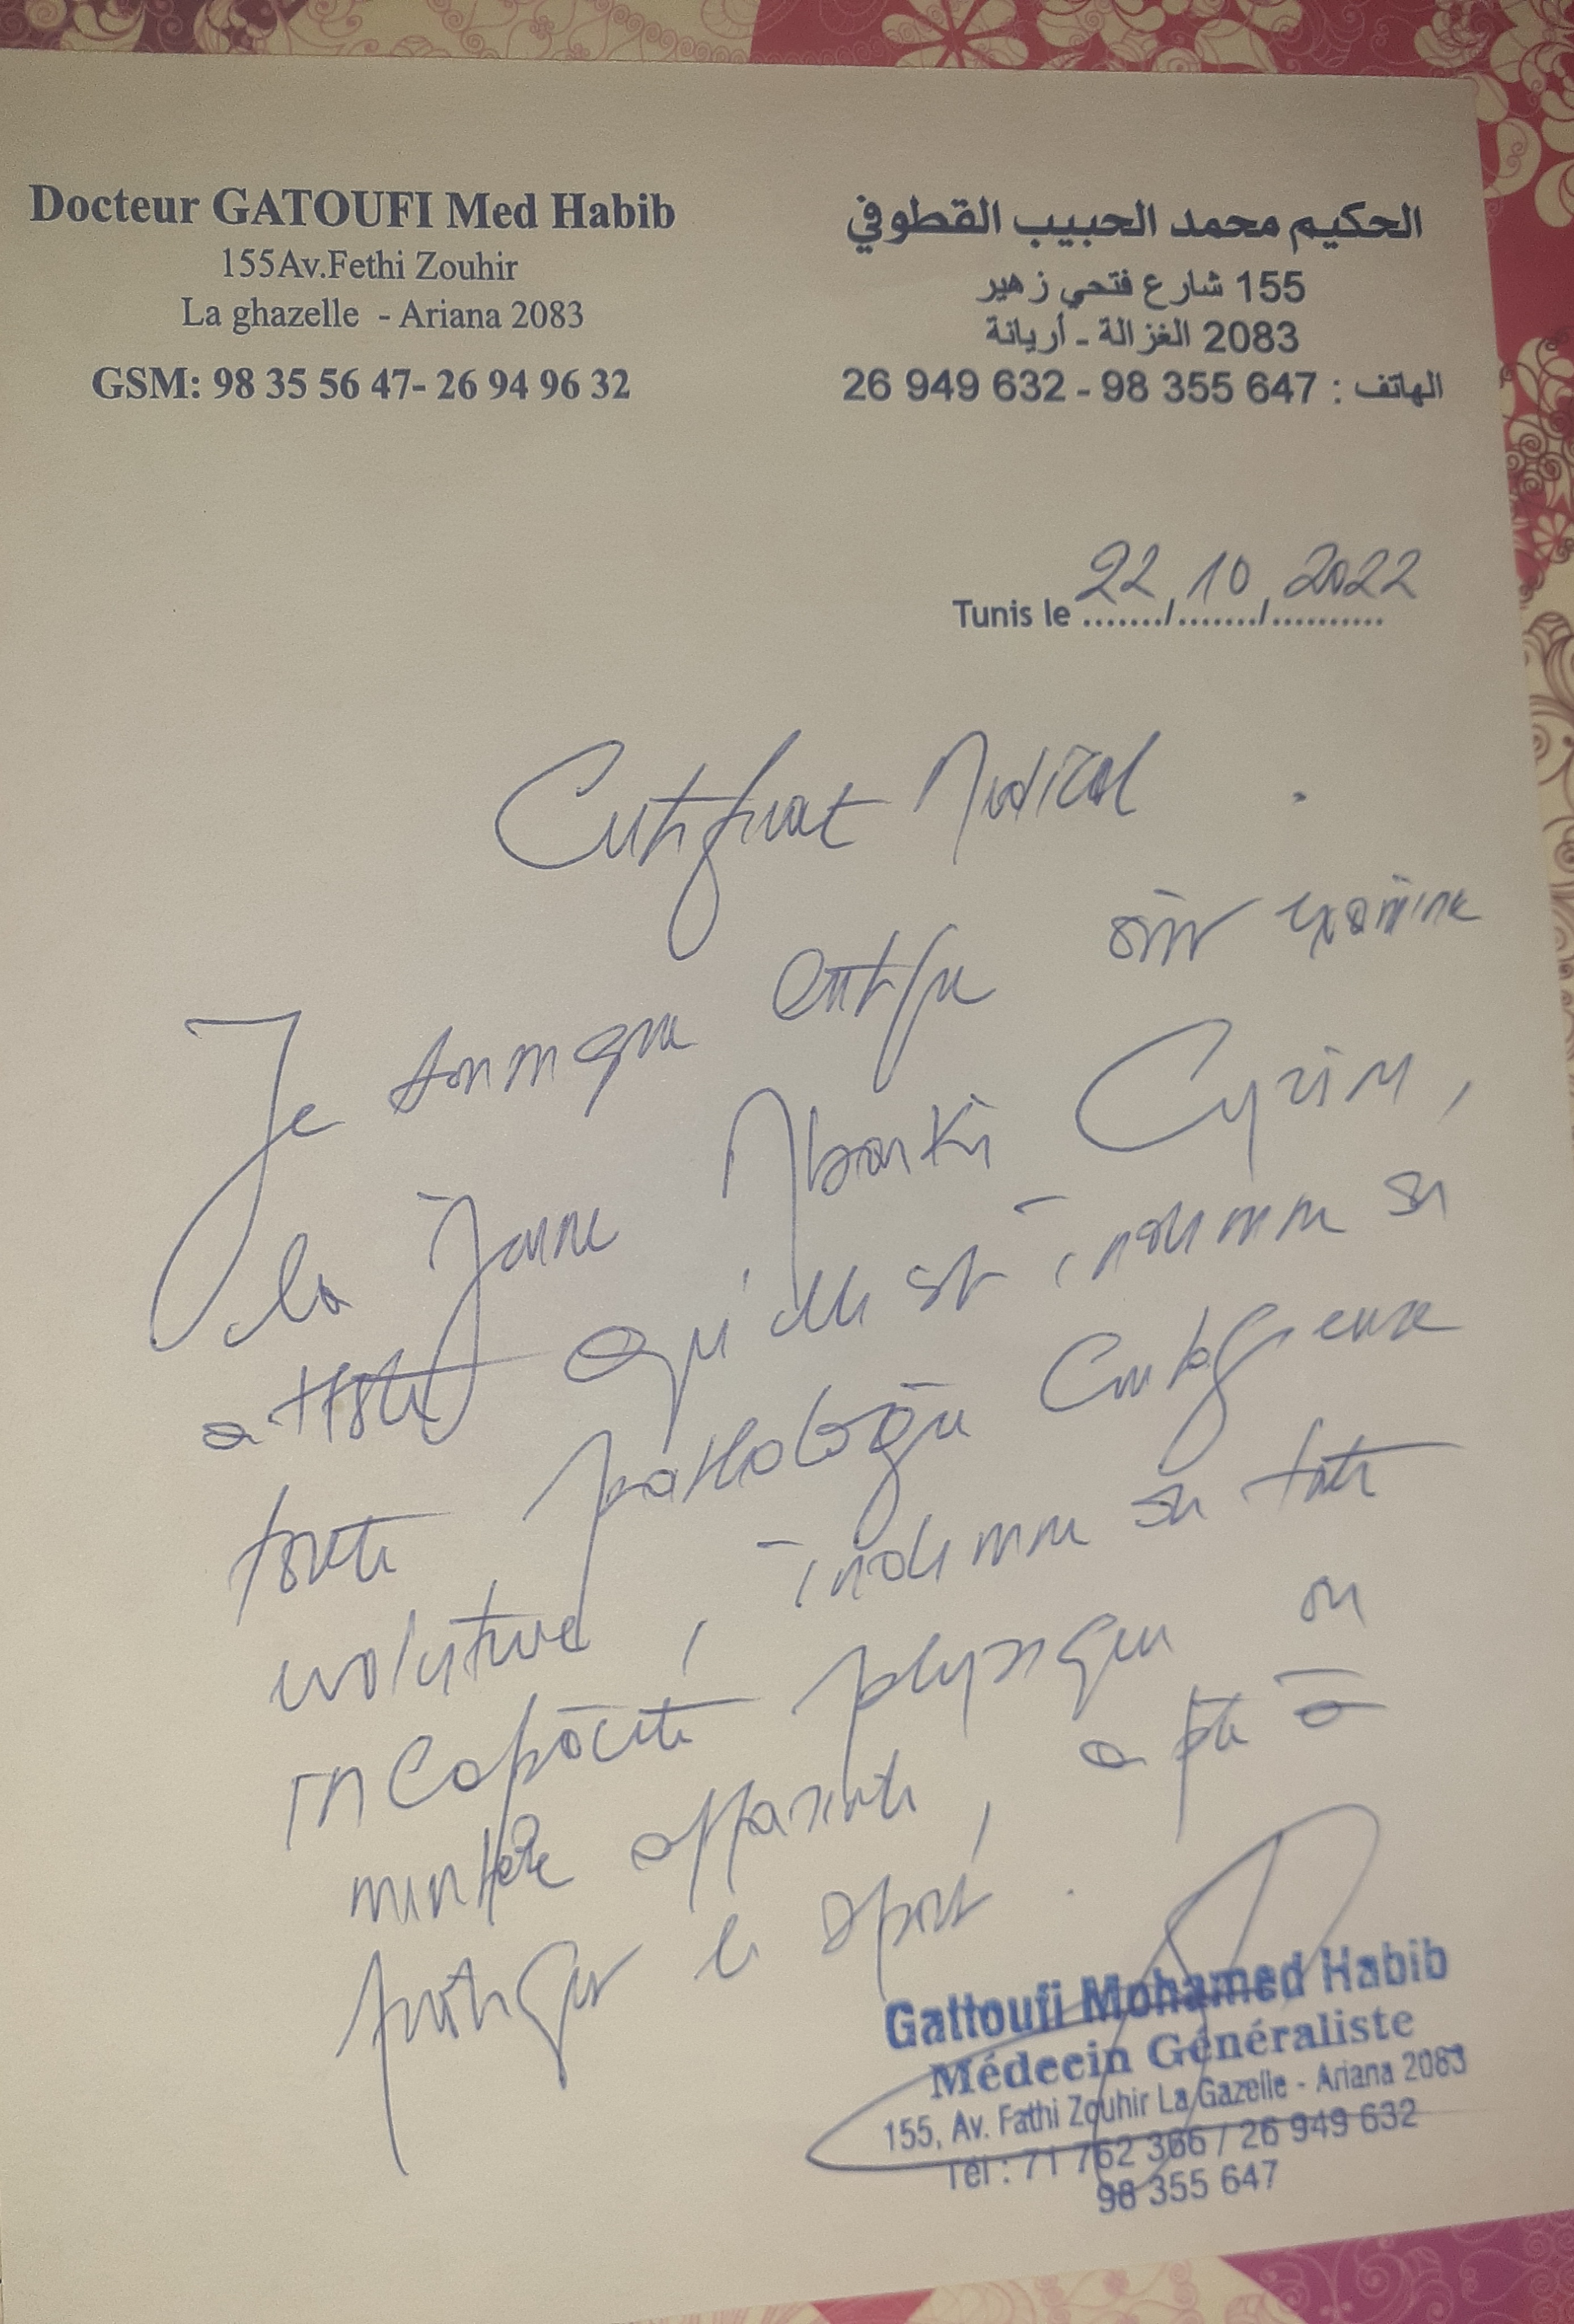 Docteur GATOUFI Med Habib
155Av.Fethi Zouhir
La ghazelle - Ariana 2083
GSM: 98 35 56 47- 26 94 96 32
الحكيم محمد الحبيب القطوفي
155 شارع فتحي زهير
2083 الغزالة - أريانة
الهاتف : 647 355 98 - 632 949 26
Tunis le 22/10/2022
Certificat Medical
Je soussigne certifie avoir examine
la Jeune Mbarki Cyrine,
atteste qu'elle est indemne de
toute pathologie contagieuse
evolutive, indemne de toute
incapacite physique ou
mentale apparente, apte à
pratiquer le sport.
Gattoufi Mohamed Habib
Médecin Généraliste
155, Av. Fathi Zouhir La Gazelle - Ariana 2083
Tél : 71 762 366 / 26 949 632
98 355 647